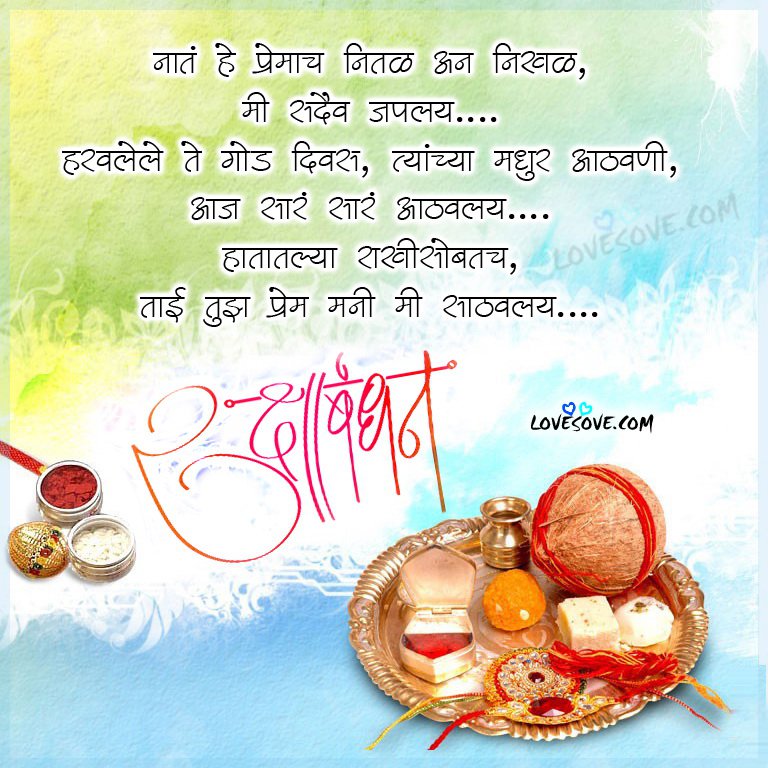 नातं हे प्रेमाच नितळ अन निखळ,
मी सदैव जपलय....
हरवलेले ते गोड दिवस, त्यांच्या मधुर आठवणी,
आज सारं सारं आठवलय....
LOVESOVE.COM
हातातल्या राखीसोबतच,
ताई तुझ प्रेम मनी मी साठवलय....
रक्षाबंधन
LOVESOVE.COM